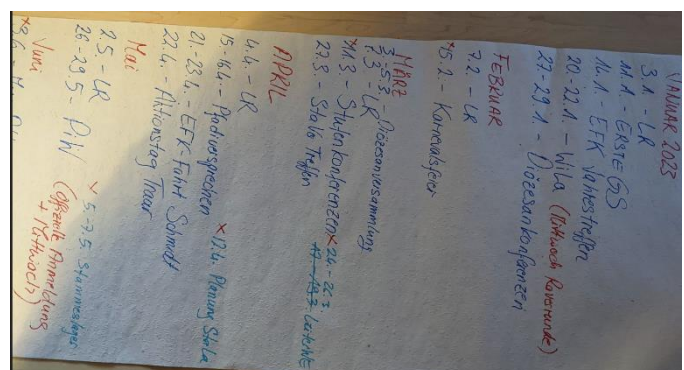 JANUAR 2023
3.1. - LR
11.1. - ERSTE GS
14.1. - EFK Jahrestreffen
20.-22.1. - WiLa (Mittwoch Raverunde)
27.-29.1. - Diözesankonferenzen
FEBRUAR
7.2. - LR
*15.2. - Karnevalsfeier
MÄRZ
3.-5.3. - Diözesanversammlung
7.3. - LR
*11.3. - Stufenkonferenzen × 24.-26.3.
27.3. - Stala Treffen 17.-19.3.
APRIL
4.4. - LR
15.-16.4. - Pfadiversprechen × 12.4. Planung Stala
21.-23.4. - EFK-Fahrt Schmidt
22.4. - Aktionstag
Mai
2.5. - LR × 5.-7.5. Stammeslager
26.-29.5. - PiW (offizielle Anmeldung
+ Mittwoch)
Juni